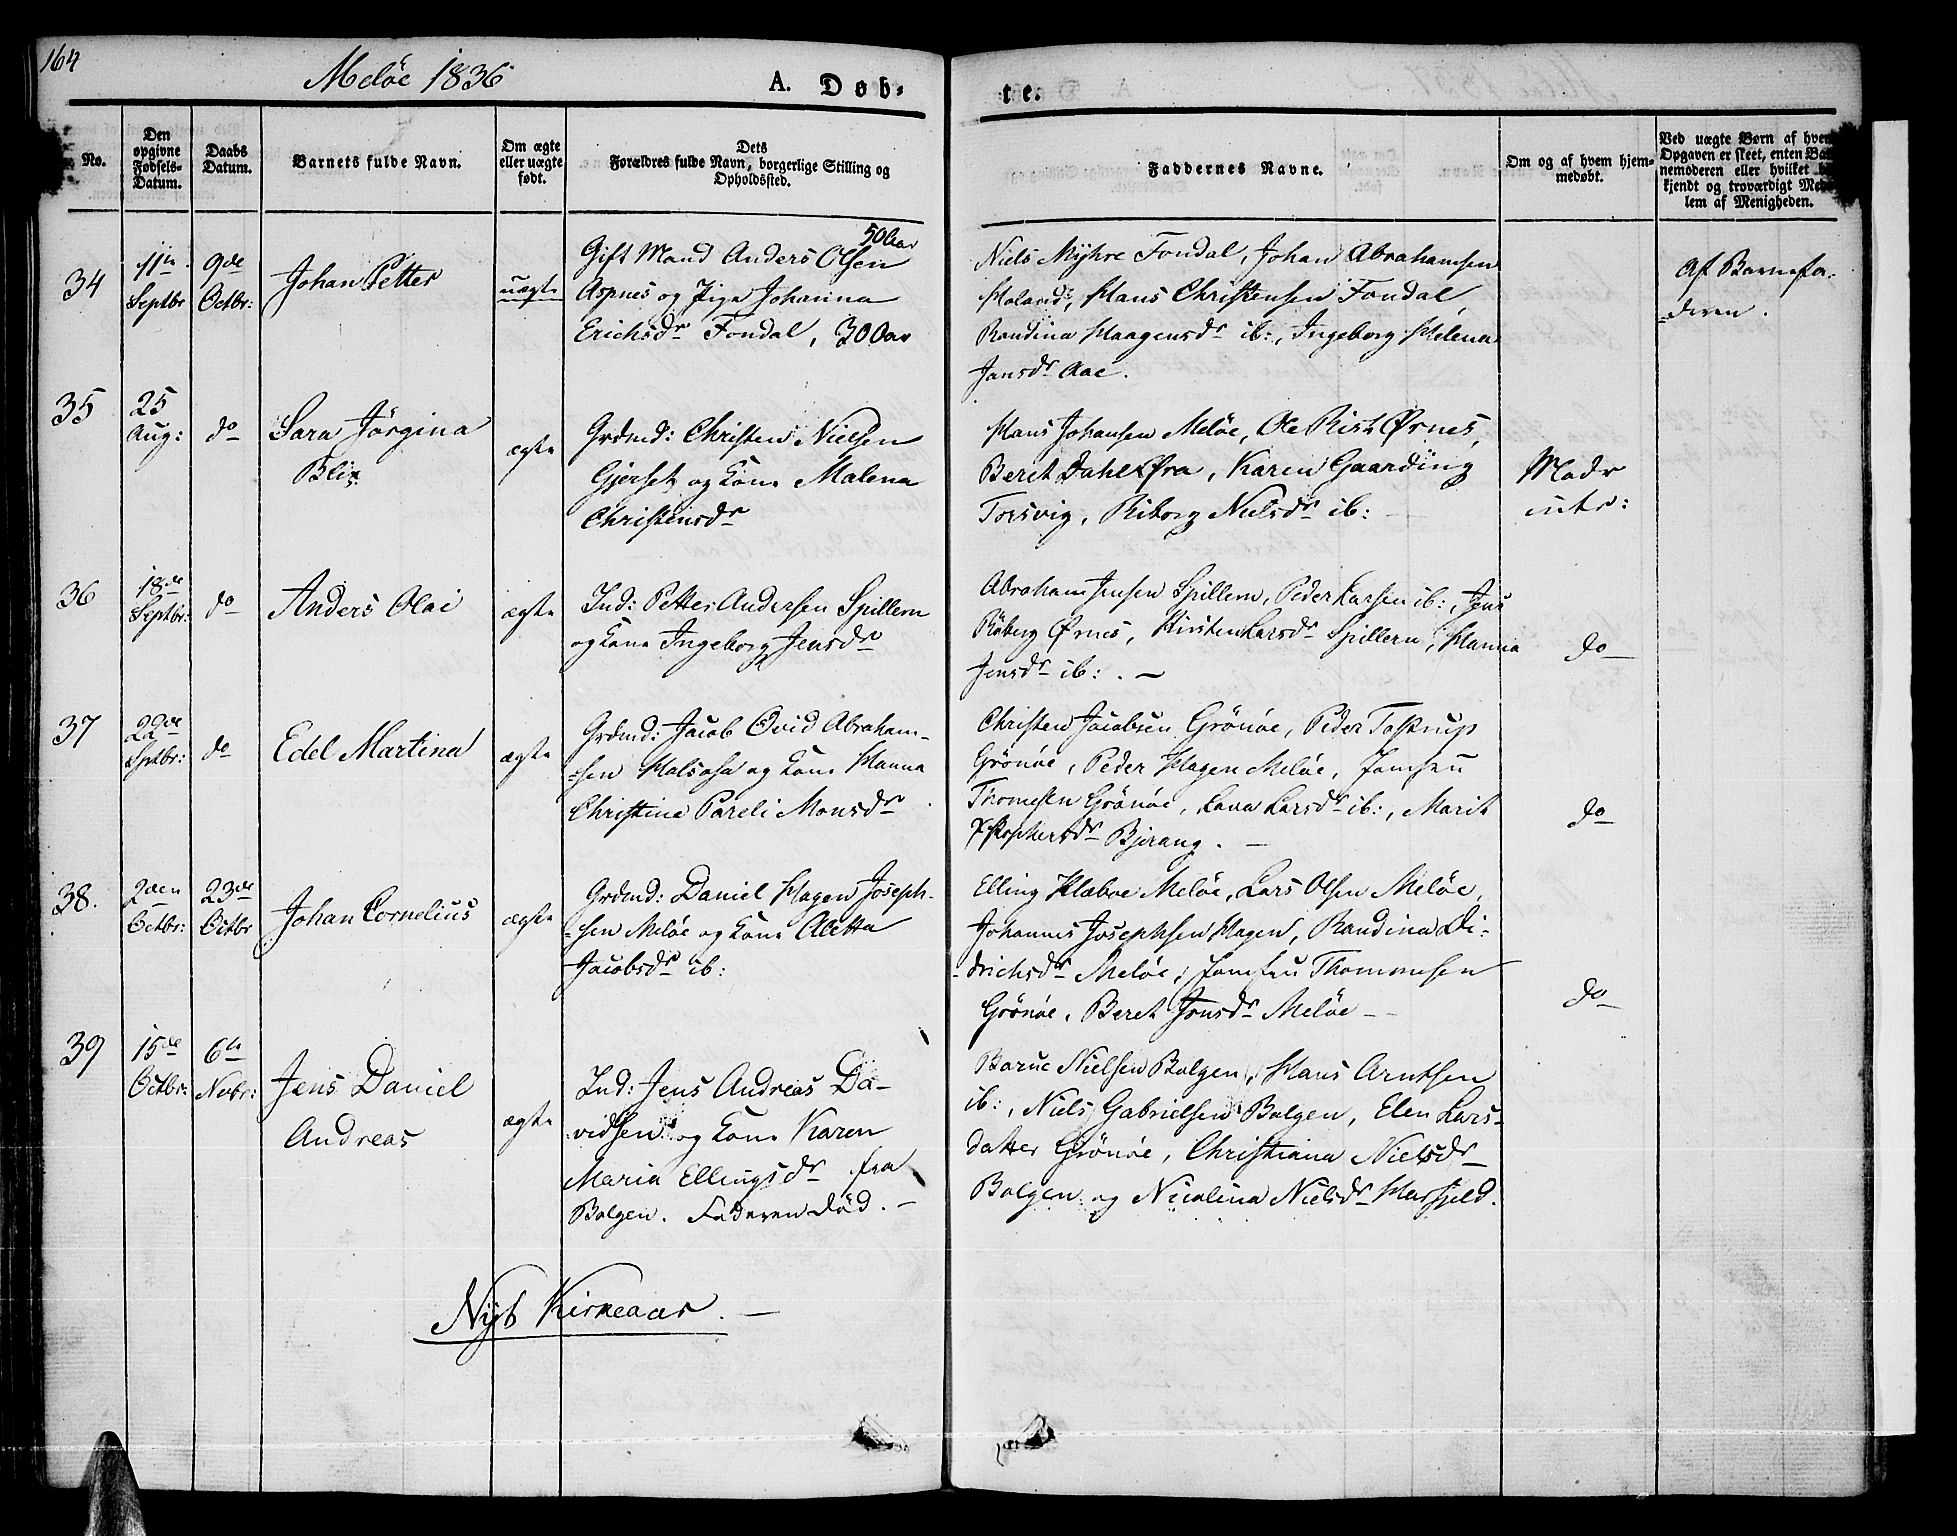 164
Meløe 1836
A. Døb-
te.
No.
Den
opgivne
Fødsels-
Datum.
Daabs
Datum.
Barnets fulde Navn.
Om ægte
eller uægte
født.
Dets
Forældres fulde Navn, borgerlige Stilling og
Opholdssted.
Faddernes Navne.
Om og af hvem hjem-
medøbt.
Ved uægte Børn af hvem
Opgaven er skeet, enten Bar
nemoderen eller hvilket
kjendt og troværdigt Med
lem af Menigheden.
34
11te
Septbr
9de
Octbr:
Johan Petter
uægte
50 Aar
Gift Mand Anders Olsen
Aspnes og Pige Johanna
Erichsdr Fondal, 30 Aar
Niels Myhre Fondal, Johan Abrahamsen
Haland, Hans Christensen Fondal,
Randina Haagensdr ib:, Ingeborg Helena
Jansdr Aae.
Af Barnefa-
deren.
35
25
Aug:
do
Sara Jørgina
Blix
ægte
Grdmd: Christen Nielsen
Gjerset og Kone Malena
Christensdr
Hans Johansen Meløe, Ole Rist Ørnes,
Beret Dahl Øra, Karen Gaarding
Torsvig, Riborg Nielsdr ib:
Madr
intr:
36
18de
Septbr:
do
Anders Olai
ægte
Ind: Petter Andersen Spillern
og Kone Ingeborg Jensdr
Abraham Jensen Spillern, Peder Larsen ib:, Jens
Røberg Ørnes, Kirsten Larsdr Spillern, Hanna
Jensdr ib:. —
do
37
22de
Sptbr:
do
Edel Martina
ægte
Grdmd: Jacob Ovid Abraham-
sen Halsosa og Kone Hanna
Christine Pareli Monsdr.
Christen Jacobsen Grønøe, Peder Tostrup
Grønøe, Peder Hagen Meløe, Jomfru
Thomesen Grønøe, Lava Larsdr ib:, Marit
Xstophersdr Bjerang. —
do
38.
2den
Octbr:
23de
Octbr
Johan Cornelius
ægte
Grdmd: Daniel Hagen Joseph-
sen Meløe og Kone Aletta
Jacobsdr ib:
Elling Klæboe Meløe, Lars Olsen Meløe,
Johannes Josephsen Hagen, Randina Di-
drichsdr Meløe, Jomfru Thommesen
Grønøe, Beret Jonsdr Meløe —
do
39
15de
Octbr:
6te
Novbr:
Jens Daniel
Andreas
ægte
Ind: Jens Andreas Da-
vidsen og Kone Karen
Maria Ellingsdr fra
Bolgen. Faderen død. —
Baruc Nielsen Bolgen, Hans Arntsen
ib:, Niels Gabrielsen Bolgen, Elen Lars-
datter Grønøe, Christiana Nielsdr
Bolgen og Nicolina Nielsdr Harfjeld.
Nyt Kirkeaar. —